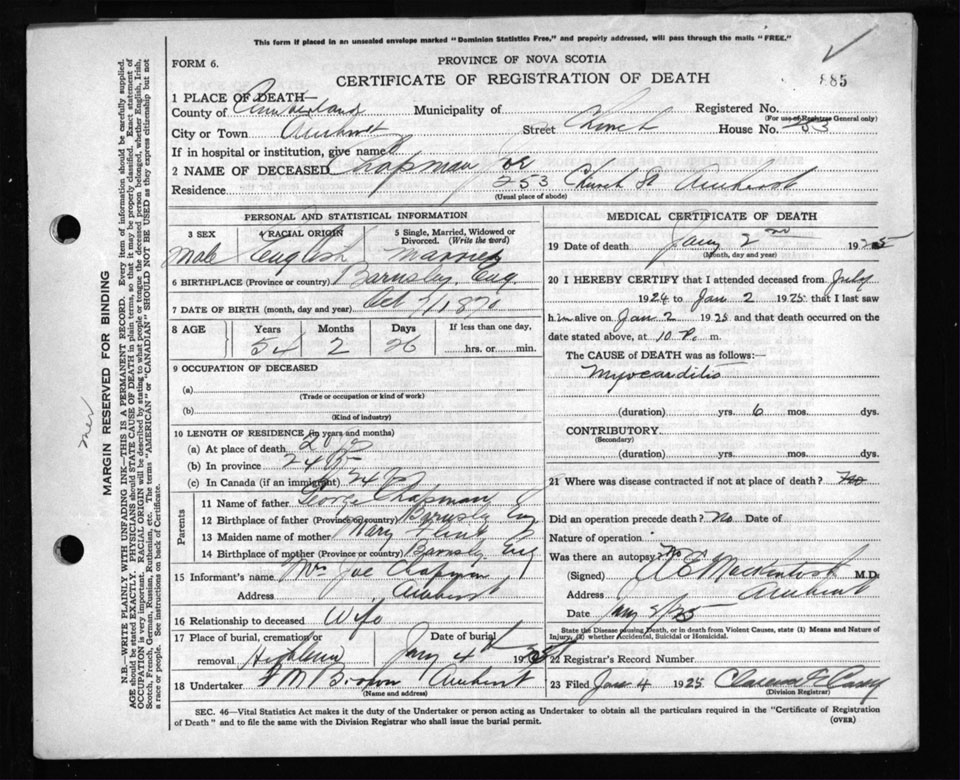 This form if placed in an unsealed envelope marked "Dominion Statistics Free," and properly addressed, will pass through the mails "FREE."
FORM 6.
PROVINCE OF NOVA SCOTIA
CERTIFICATE OF REGISTRATION OF DEATH
885
1 PLACE OF DEATH—
County of Cumberland Municipality of Registered No.
(For use of Registrar General only)
City or Town Amherst Street Church House No. 253
If in hospital or institution, give name
2 NAME OF DECEASED Chapman Joe
Residence 253 Church St Amherst
(Usual place of abode)
PERSONAL AND STATISTICAL INFORMATION
3 SEX 4 RACIAL ORIGIN 5 Single, Married, Widowed or Divorced. (Write the word)
Male English Married
6 BIRTHPLACE (Province or country) Barnsley, Eng.
7 DATE OF BIRTH (month, day and year) Oct 1870
8 AGE Years Months Days If less than one day,
54 2 26 hrs. or min.
9 OCCUPATION OF DECEASED
(a)
(Trade or occupation or kind of work)
(b)
(Kind of industry)
10 LENGTH OF RESIDENCE (in years and months)
(a) At place of death
(b) In province 24
(c) In Canada (if an immigrant) 24
Parents
11 Name of father George Chapman
12 Birthplace of father (Province or country) Barnsly Eng
13 Maiden name of mother Mary
14 Birthplace of mother (Province or country) Barnsly Eng
15 Informant's name Mrs Joe Chapman
Address Amherst
16 Relationship to deceased Wife
17 Place of burial, cremation or removal Date of burial
Jany 4th 19
18 Undertaker F M Brown Amherst
(Name and address)
MEDICAL CERTIFICATE OF DEATH
19 Date of death Jany 2nd 1925
(Month, day and year)
20 I HEREBY CERTIFY that I attended deceased from July
1924 to Jan 2 1925 that I last saw
him alive on Jan 2 1925 and that death occurred on the
date stated above, at 10 P. m.
The CAUSE OF DEATH was as follows:—
Myocarditis
(duration) yrs. 6 mos. dys.
CONTRIBUTORY
(Secondary)
(duration) yrs. mos. dys.
21 Where was disease contracted if not at place of death?
Did an operation precede death? No Date of
Nature of operation
Was there an autopsy? No
(Signed) A E Mackintosh M.D.
Address Amherst
Date Jany
State the Disease causing Death, or in death from Violent Causes, state (1) Means and Nature of Injury, (2) whether Accidental, Suicidal or Homicidal.
22 Registrar's Record Number
23 Filed Jan 4 1925 Clarence E Casey
(Division Registrar)
SEC. 46—Vital Statistics Act makes it the duty of the Undertaker or person acting as Undertaker to obtain all the particulars required in the "Certificate of Registration
of Death" and to file the same with the Division Registrar who shall issue the burial permit.
(OVER)
MARGIN RESERVED FOR BINDING
N.B.—WRITE PLAINLY WITH UNFADING INK—THIS IS A PERMANENT RECORD. Every item of information should be carefully supplied.
AGE should be stated EXACTLY. PHYSICIANS should STATE CAUSE OF DEATH in plain terms, so that it may be properly classified. Exact statement of
OCCUPATION is very important. RACIAL ORIGIN will be described by stating to what people or tongue the deceased person belonged, whether English, Irish,
Scotch, French, German, Russian, Ruthenian, etc. The terms "AMERICAN" or "CANADIAN" SHOULD NOT BE USED as they express citizenship but not
a race or people. See instructions on back of Certificate.